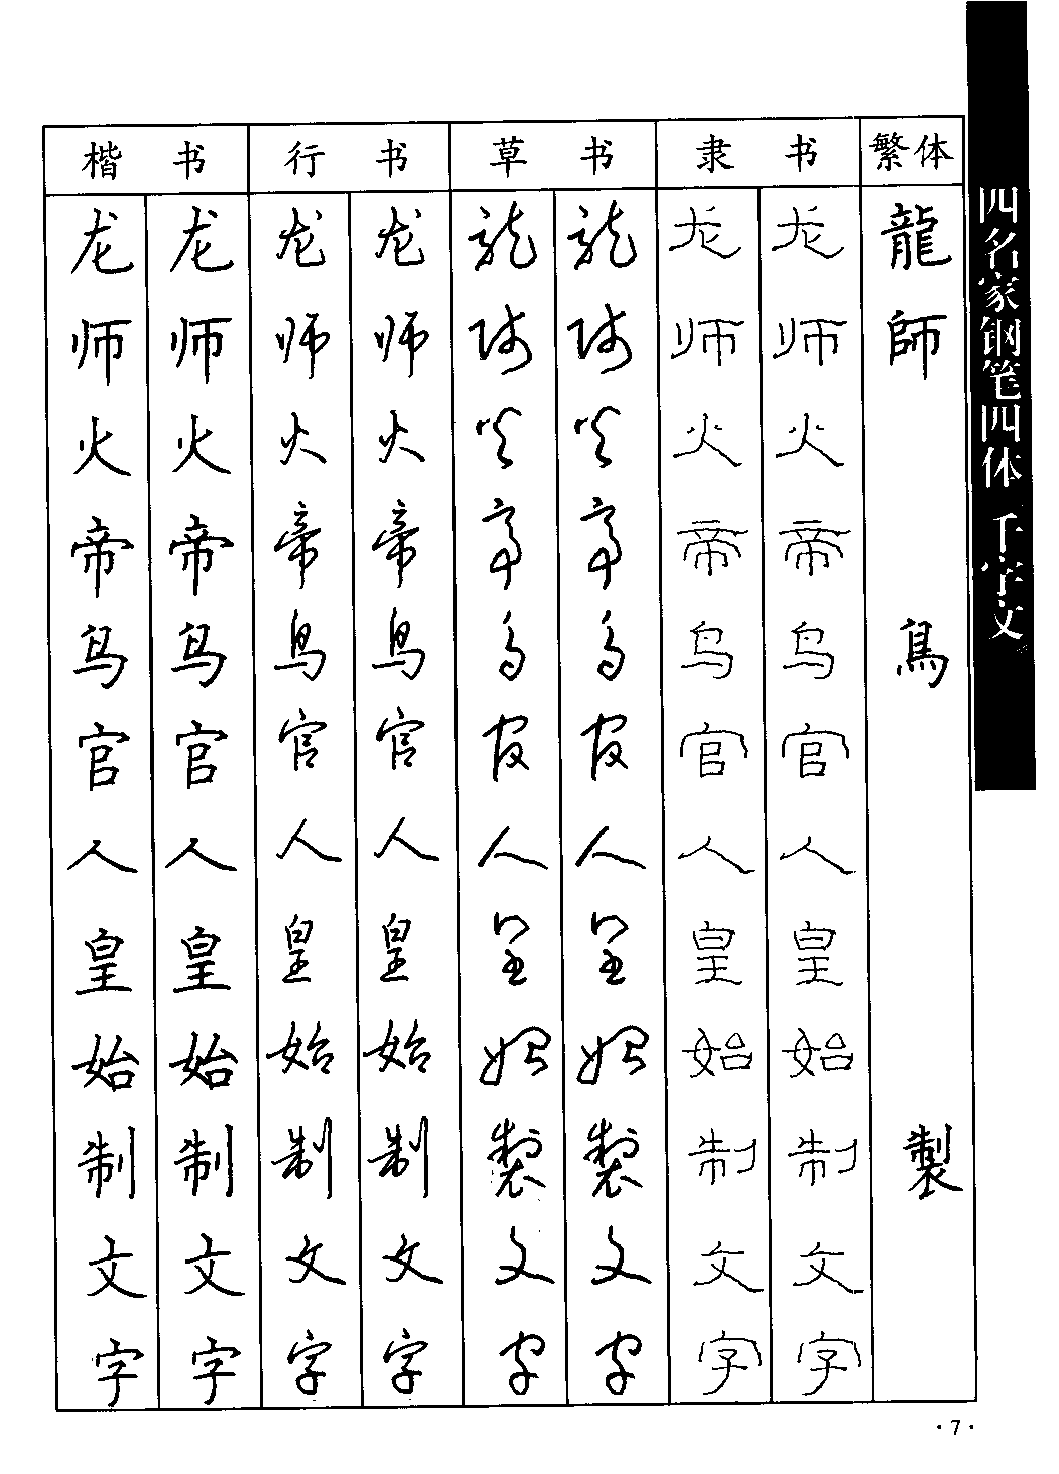 楷书 行书 草书 隶书 繁体
龙 龙 龙 龙 龙 龙 龙 龙 龍
师 师 师 师 师 师 师 师 師
火 火 火 火 火 火 火 火
帝 帝 帝 帝 帝 帝 帝 帝
鸟 鸟 鸟 鸟 鸟 鸟 鸟 鸟 鳥
官 官 官 官 官 官 官 官
人 人 人 人 人 人 人 人
皇 皇 皇 皇 皇 皇 皇 皇
始 始 始 始 始 始 始 始
制 制 制 制 製 製 制 制 製
文 文 文 文 文 文 文 文
字 字 字 字 字 字 字 字
四名家钢笔四体 千字文
·7·